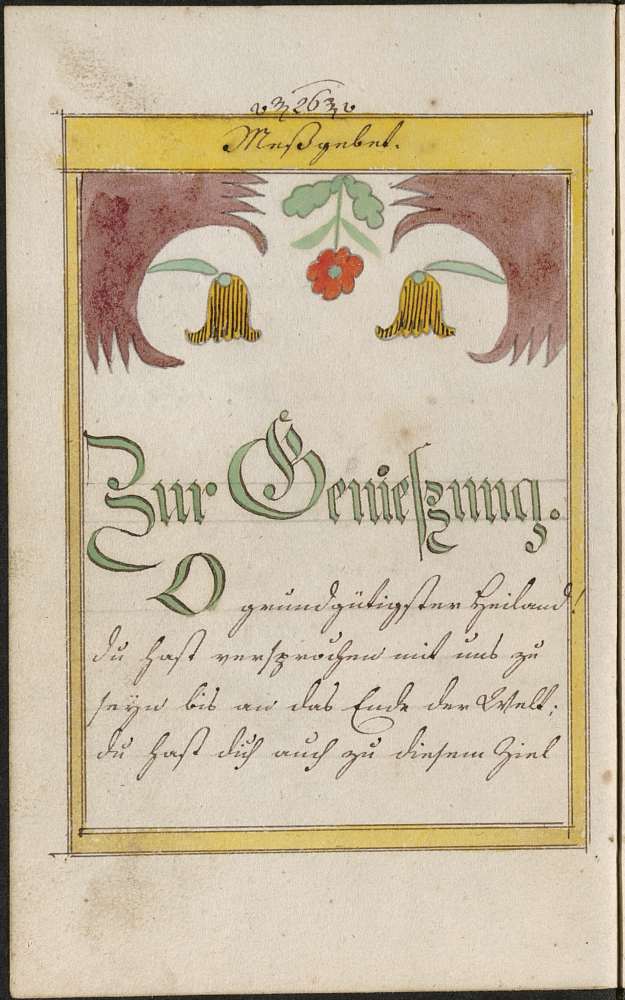 26
Meßgebet.
Zur Genieszung.
O grundgütigster Heiland!
du hast versprochen mit uns zu
seyn bis an das Ende der Welt;
du hast dich auch zu diesem Ziel